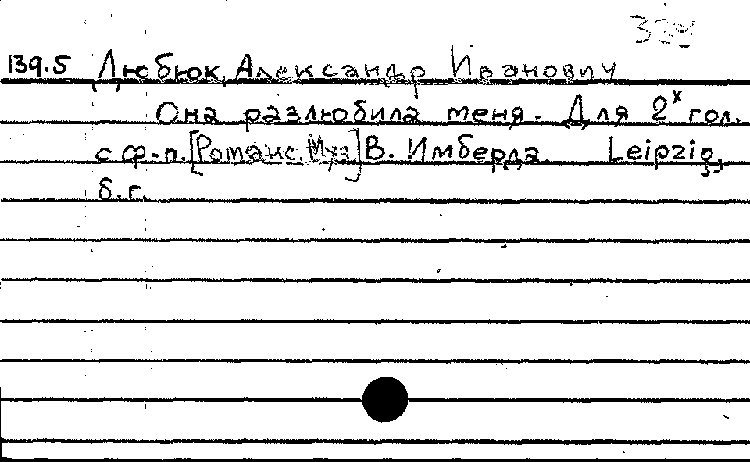 139.5 Дюбюк, Александр Иванович
Она разлюбила меня. Для 2ˣ гол.
с ф-п. [Романс. Муз.] В. Имберга. Leipzig,
б.г.